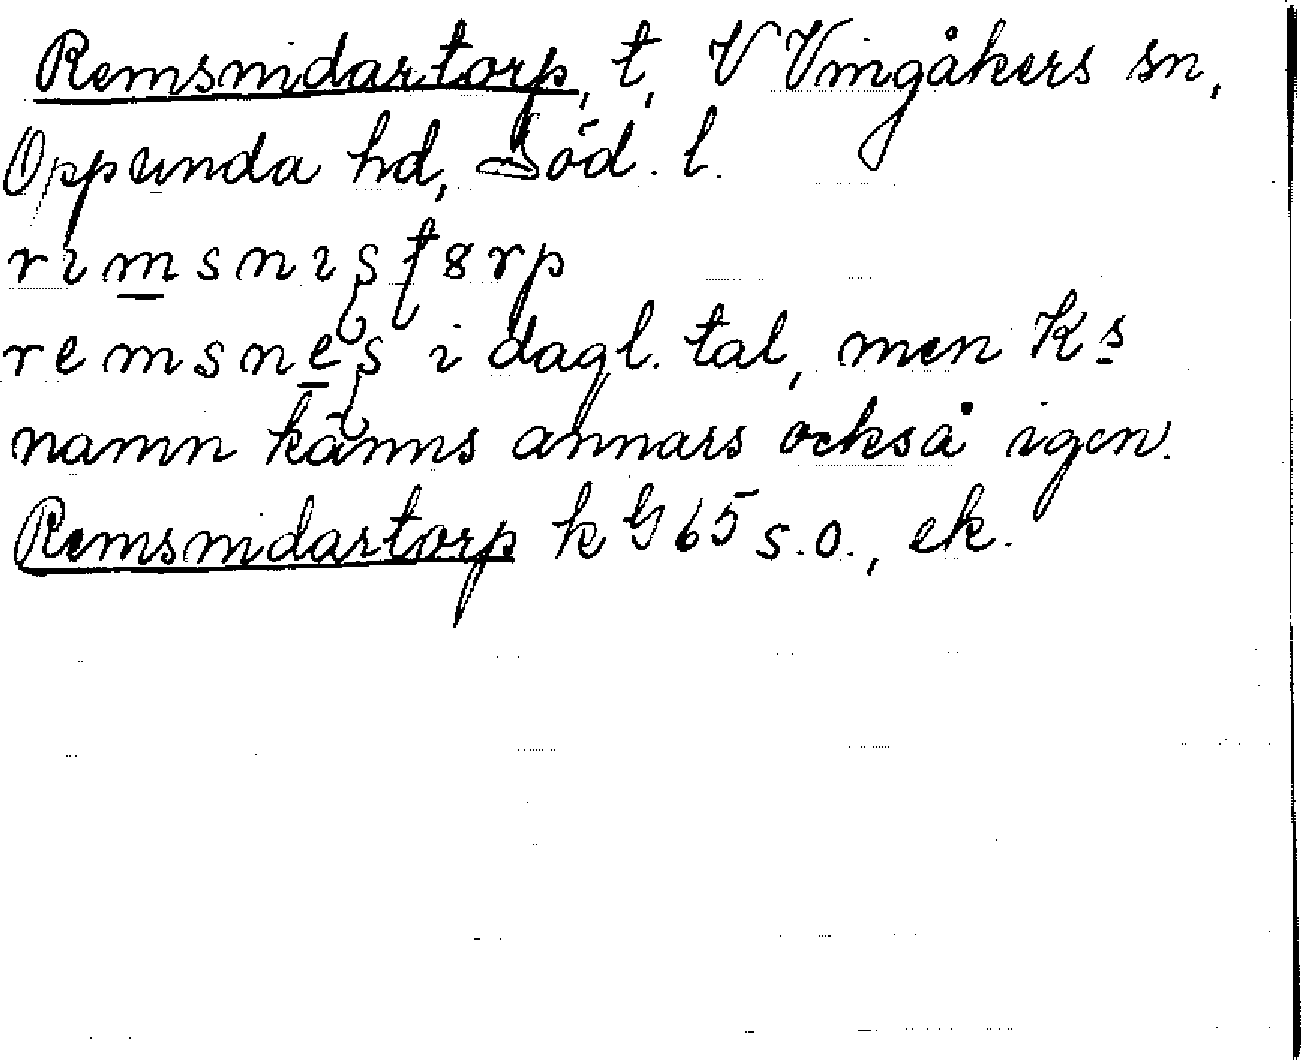 Remsmidartorp, t, V Vingåkers sn,
Oppunda hd, Söd. l.
rımsnıʂʈ8rp
remsneʂ i dagl. tal, men Ks
namn känns annars också igen.
Remsmidartorp k G 65 s.o., ek.